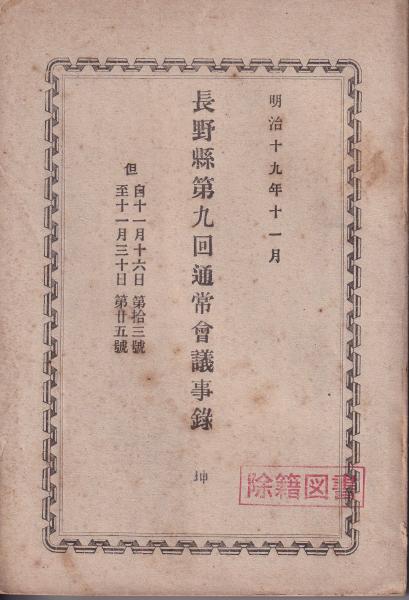 明治十九年十一月
長野縣第九回通常會議事錄 坤
但 自十一月十六日 第拾三號
至十一月三十日 第廿五號
除籍図書